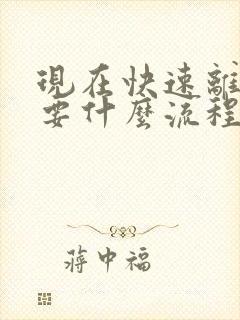 現在快速離
要什麼流程
蔣中福